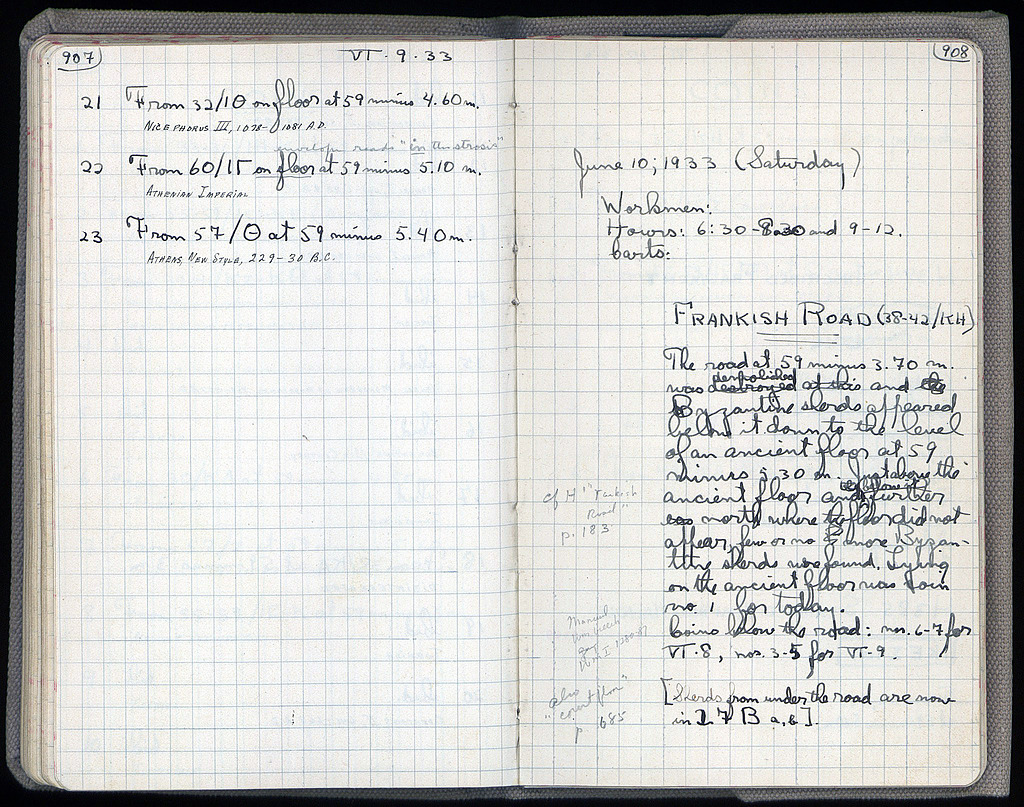 907
VI · 9 · 33
21 From 32/ΙΘ on floor at 59 minus 4.60 m.
NICEPHORUS III, 1078-1081 A.D.
envelope reads "in the strosis"
22 From 60/ΙΓ on floor at 59 minus 5.10 m.
ATHENIAN IMPERIAL
23 From 57/Θ at 59 minus 5.40 m.
ATHENS, NEW STYLE, 229-30 B.C.
908
June 10, 1933 (Saturday)
Workmen:
Hours: 6:30-8:30 and 9-12.
Carts:
FRANKISH ROAD (38-42/ΚΗ)
The road at 59 minus 3.70 m.
demolished
was destroyed at this and
Byzantine sherds appeared
below it down to the level
of an ancient floor at 59
minus 5.30 m. Just above the
ancient floor and further
north where the floor did not
appear, few or no more Byzan-
tine sherds were found. Lying
on the ancient floor was Coin
no. 1 for today.
Coins below the road: nos. 6-7 for
VI·8, nos. 3-5 for VI·9.
[Sherds from under the road are now
in 27 B a, b].
cf H' "Turkish
Road"
p. 183
Manuel
also
"court floor"
p. 685